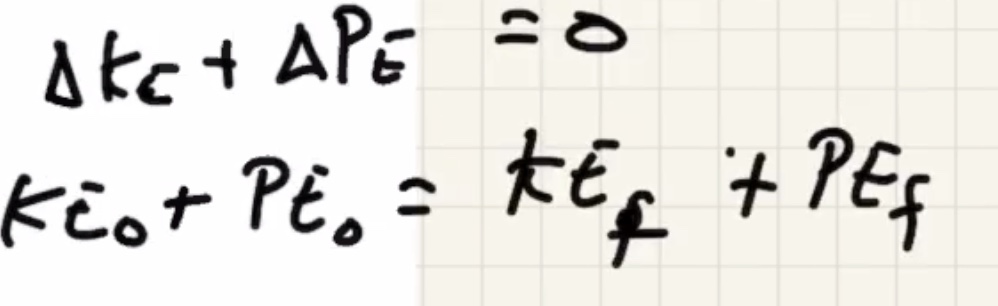 ΔKE + ΔPE = 0
KE₀ + PE₀ = KE_f + PE_f